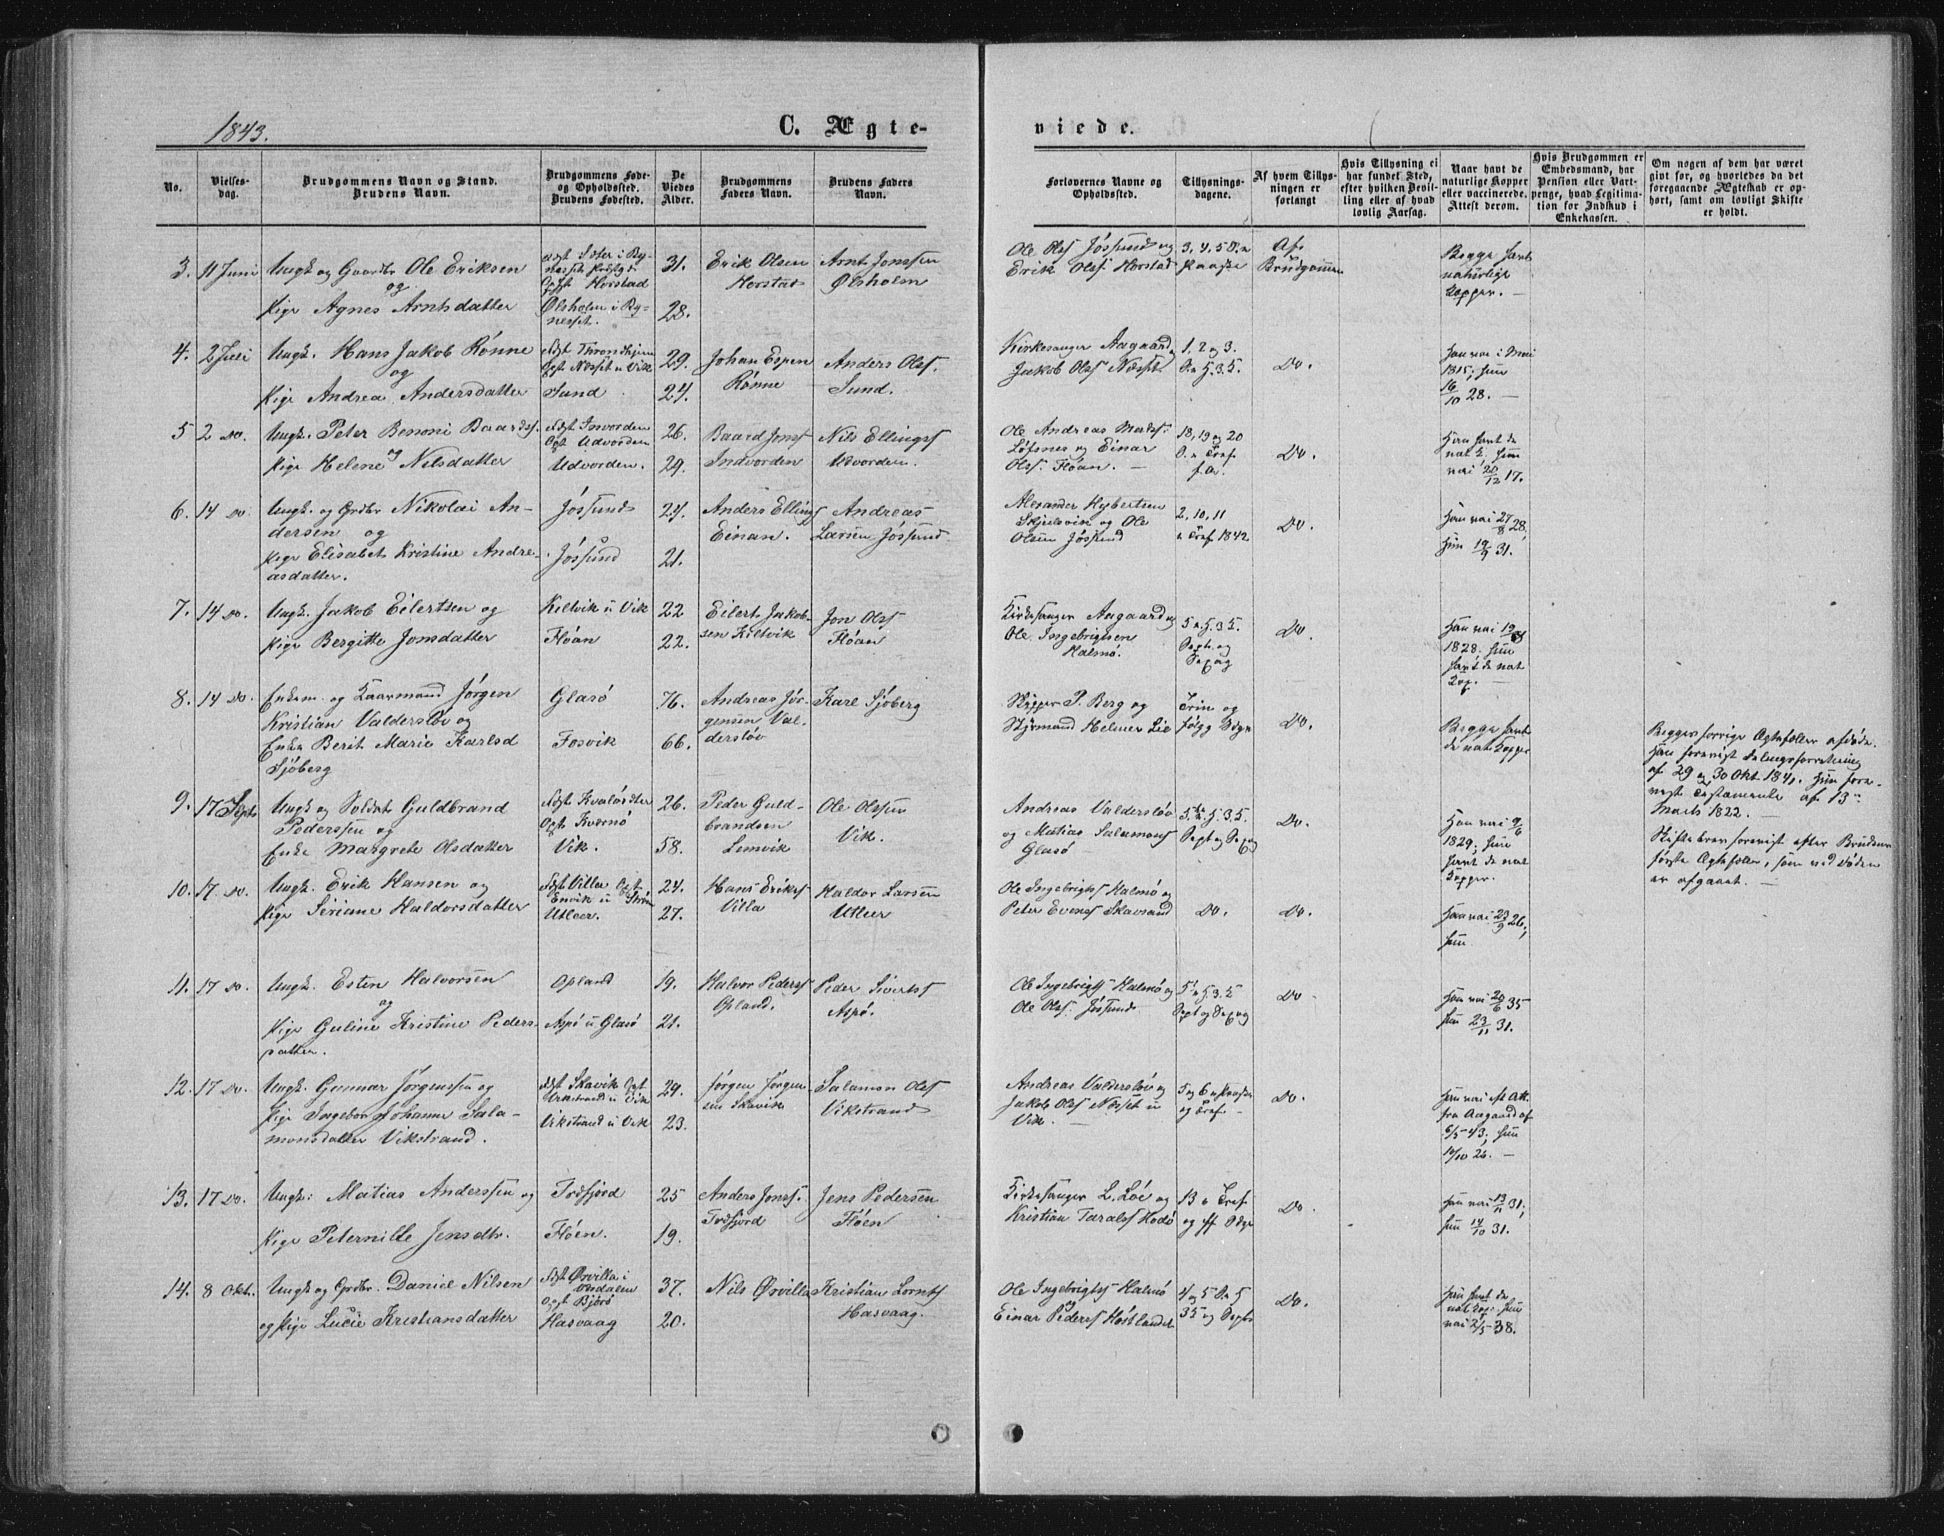 1843.
C. Ægte-
viede.
No.
Vielses-
dag.
Brudgommens Navn og Stand.
Brudens Navn.
Brudgommens Føde-
og Opholdssted.
Brudens Fødested.
De
Viedes
Alder.
Brudgommens
Faders Navn.
Brudens Faders
Navn.
Forlovernes Navne og
Opholdssted.
Tillysnings-
dagene.
Af hvem Tillys-
ningen er
forlangt
Hvis Tillysning ei
har fundet Sted,
efter hvilken Bevil-
ling eller af hvad
lovlig Aarsag.
Naar havt de
naturlige Kopper
eller vaccinerede.
Attest derom.
Hvis Brudgommen er
Embedsmand, har
Pension eller Vart-
penge, hvad Legitima-
tion for Indskud i
Enkekassen.
Om nogen af dem har været
gift før, og hvorledes da det
foregaaende Ægteskab er op-
hørt, samt om lovligt Skifte
er holdt.
3. 11 Juni
Ungk og Gaardbr Ole Eriksen
og
Pige Agnes Arntsdatter
Opst Horstad
Ølsholm i By-
nesset.
31.
28.
Erik Olsen
Horstad
Arnt Jonssen
Ølsholm
Ole Ols Jøssund og
Erik Ols Horstad
3, 4, 5 S. e
Paaske
Af
Brudgommen
Begge havt
naturlige
Kopper. —
4. 2 Juli
Ungk. Hans Jakob Rønne
og
Pige Andrea Andersdatter
Fdst Throndhjem
Opst Næsset i Vik
Sund
29.
24.
Johan Espen
Rønne
Anders Ols.
Sund.
Kirkesanger Aagaard
Jakob Ols Næsset
1, 2 og 3.
Do.
Han vac i Mai
1815; hun
16/10 28. —
5 2 Do.
Ungk. Peter Benoni Baards.
og
Pige Helene Nilsdatter
Fdst Invorden
Opst Udvorden
Udvorden.
26.
29.
Baard Jons
Indvorden
Nils Ellings
Udvorden.
Ole Andreas Mats.
Løfsnes og Einar
Ols. Fløan. —
18, 19 og 20
S. e Tref
f. A.
Do.
Han havt de
nat K. hun
vac 20/12 17.
6. 14 Do.
Ungk. og Grdbr Nikolai An-
dersen og
Pige Elisabet Kristine Andre-
asdatter.
Jøssund
Jøssund
24.
21.
Anders Ellings
Einan.
Andreas
Larsen Jøssund.
Alexander Hybertsen
Skjelsvik og Ole
Olsen Jøssund
2, 10, 11
e Tref 1842
Do.
Han vac 27/8 28,
hun 19/9 31.
7. 14 Do.
Ungk. Jakob Eilertsen og
Pige Bergitte Jonsdatter
Kiltvik i Vik
Fløan
22
22.
Eilert Jakob-
sen Kiltvik
Jon Ols
Fløan
Kirkesanger Aagaard og
Ole Ingebrigtsen
Kalmø.
Sept. og
Sexag
Do.
Han vac 19/
1828. hun
havt de nat
Kop. —
8. 14 Do.
Enkem. og Kaarmand Jørgen
Kristian Valdersløv og
Enke Berit Marie Karlsd
Sjøberg
Glasø
Fosvik
76.
66.
Andreas Jør-
gensen Val-
dersløv
Karl Sjøberg
Skipper P. Berg og
Styrmand Helmer Lie
Trin og
følgg Søgn
Do.
Begge havt
de nat Kopper
Begges forrige Ægtefæller afdøde.
Han forevist Delingsforretning
af 29 og 30 Okt. 1841. Hun fore-
vist Testamente af 13de
Marts 1822.
9. 17 Sept
Ungk og Soldat Guldbrand
Pederssen og
Enke Margrete Olsdatter
Opst Kværnø
Vik.
26.
58.
Peder Guld-
brandsen
Lemvik
Ole Olssen
Vik.
Andreas Valdersløv
og Matias Salamons
Glasø
Sept og Sexag
Do.
Han vac 9/6
1829; hun
havt de nat
Kopper.
Skiftebrev forevist efter Brudens
første Ægtefælle, som ved Døden
er afgaaet. —
10. 17. Do.
Ungk. Erik Hansen og
Pige Seriane Haldorsdatter
Fdst Villa Opst
Envik i Strøm
Utleer.
24.
27.
Hans Eriks
Villa
Haldor Larsen
Utleer
Ole Ingebrigts Halmø og
Peter Evens Skavsand
Do.
Do.
Han vac 23/9 26;
hun
11. 17 Do.
Ungk. Esten Halvorsen
og
Pige Guline Kristine Peders-
datter.
Opland
Aspø i Glasø
19.
21.
Halvor Peders
Opland.
Peder Siverts
Aspø.
Ole Ingebrigts Halmø og
Ole Ols. Jøssund
Sept og Sexag
Do
Han vac 20/6 35
hun 23/11 31.
12. 17 Do.
Ungk. Gunnar Jørgenssen og
Pige Ingeborg Johanna Sala-
monsdatter Vikstrand.
Fdst Skavik Opst
Vikstrand i Vik
Vikstrand i Vik
29.
23.
Jørgen Jørgen-
sen Skavik
Salamon Ols
Vikstrand
Andreas Valdersløv og
Jakob Ols Næsset i
Vik. —
5 og 6 e Paaske
og Tref. —
Do.
Han vac ifl Att.
fra Aagaard af
6/5 43; hun
10/10 26. —
13. 17 Do.
Ungk. Matias Anderssen og
Pige Peternille Jensdtr.
Tredfjord
Fløen.
25
19.
Anders Jons.
Tredfjord
Jens Pedersen
Fløen
Kirkesanger L. Løe og
Kristian Tarals Hodø
13 e Tref
og ff Søge
Do
Han vac 13/11 31;
hun 14/10 31.
14. 8 Okt.
Ungk og Grdbr. Daniel Nilsen
og Pige Lucie Kristiansdatter
Fdst Ørvilla i
Opst Bjørø
Hasvaag
37.
20.
Nils Ørvilla
Kristian Lornts
Hasvaag.
Ole Ingebrigts Halmø
og
Einar Peders Høstlandet
Do.
Han havt de
nat Kop. hun
vac 2/5 38.